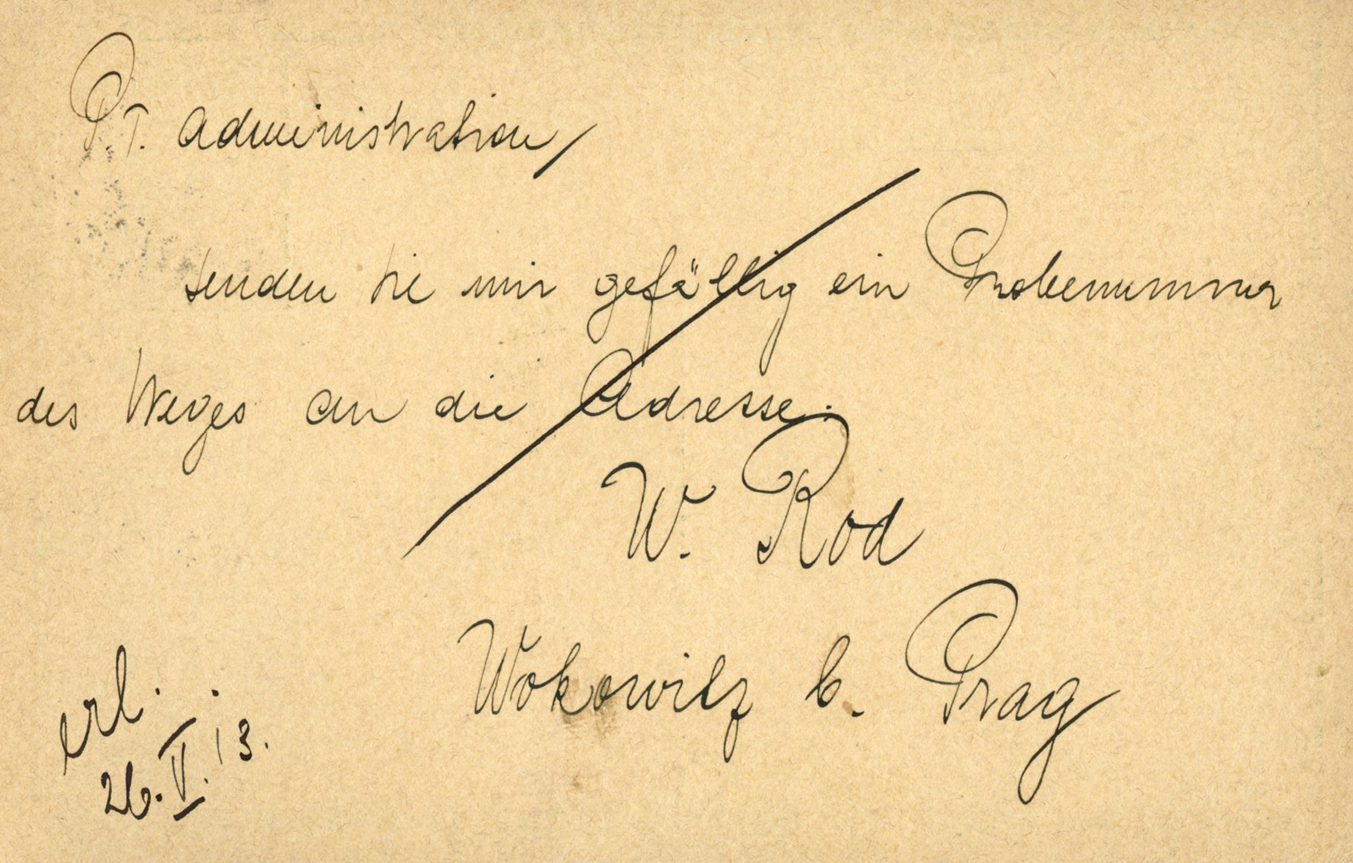 P.T. Administration,
senden sie mir gefällig ein Probenummer
des Weges an die Adresse.
W. Rod
Wokowitz b. Prag
erl.
26.V.13.